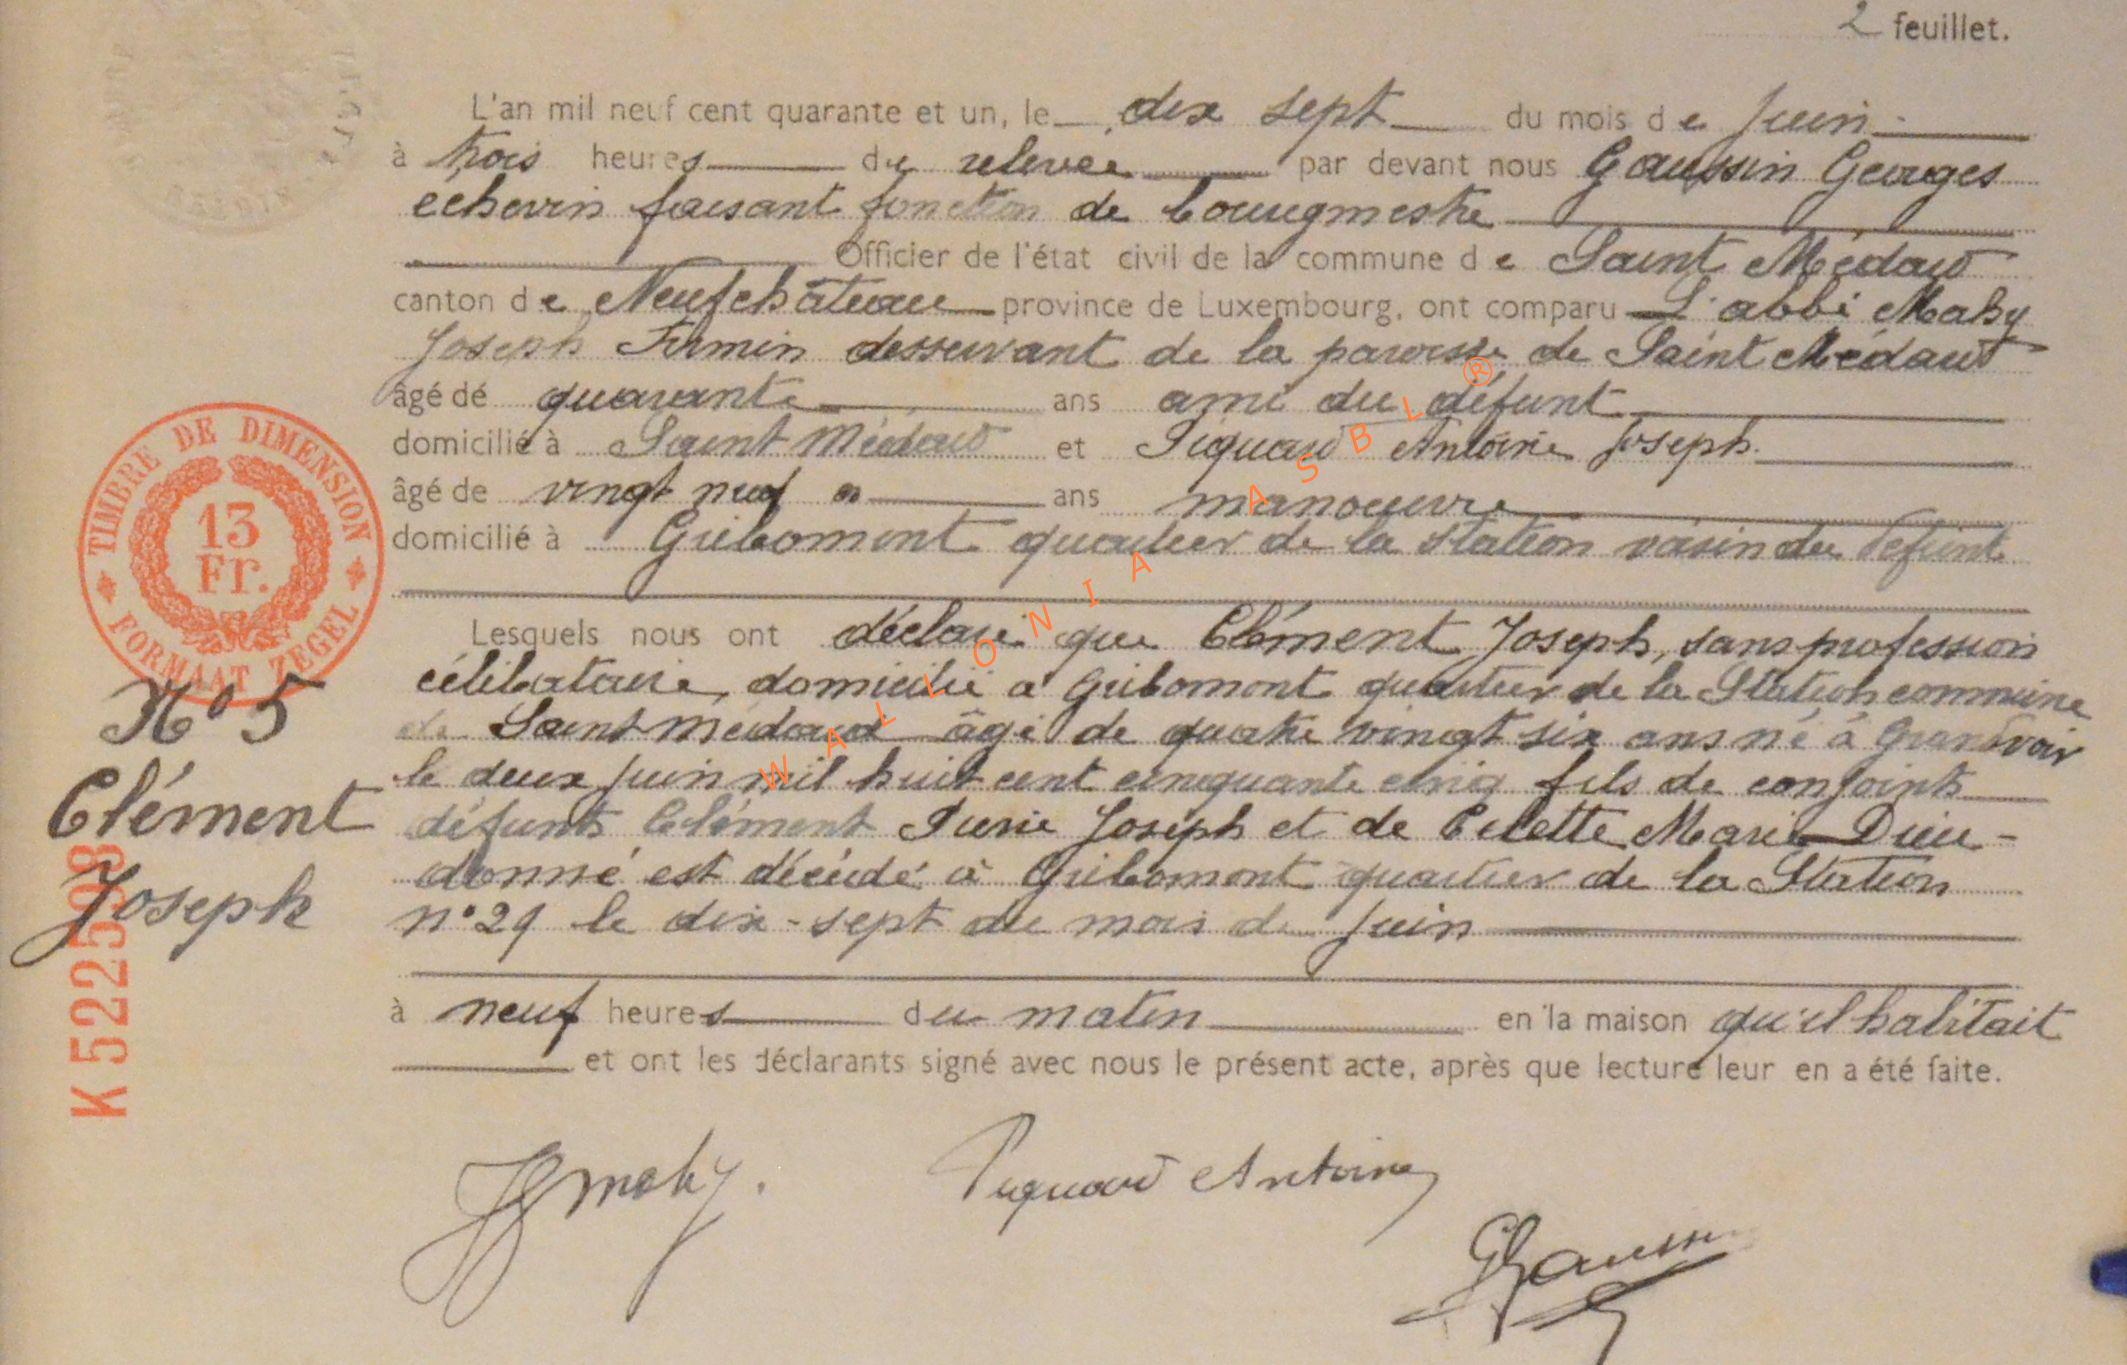 2 feuillet.
L'an mil neuf cent quarante et un, le dix sept du mois de juin
à trois heures de relevée par devant nous Gaussin Georges
échevin faisant fonction de bourgmestre
Officier de l'état civil de la commune de Saint Médard
canton de Neufchâteau province de Luxembourg, ont comparu L'abbé Mahy
Joseph Firmin desservant de la paroisse de Saint Médard
âgé de quarante ans ami du défunt
domicilié à Saint Médard et Piquard Antoine Joseph
âgé de vingt neuf ans manoeuvre
domicilié à Gribomont quartier de la Station voisin du défunt
Lesquels nous ont déclaré que Clément Joseph, sans profession
célibataire, domicilié à Gribomont quartier de la Station commune
de Saint Médard âgé de quatre vingt six ans né à Grandvoir
le deux juin mil huit cent cinquante cinq fils de conjoints
défunts Clément Pierre Joseph et de Collette Marie Dieu-
donné est décédé à Gribomont quartier de la Station
n° 29 le dix-sept du mois de juin
à neuf heures du matin en la maison qu'il habitait
et ont les déclarants signé avec nous le présent acte, après que lecture leur en a été faite.
JFMahy.
Piquard Antoine
GGaussin
TIMBRE DE DIMENSION
13
Fr.
FORMAAT ZEGEL
N° 5
Clément
Joseph
K 522598
WALLONIA ASBL ®